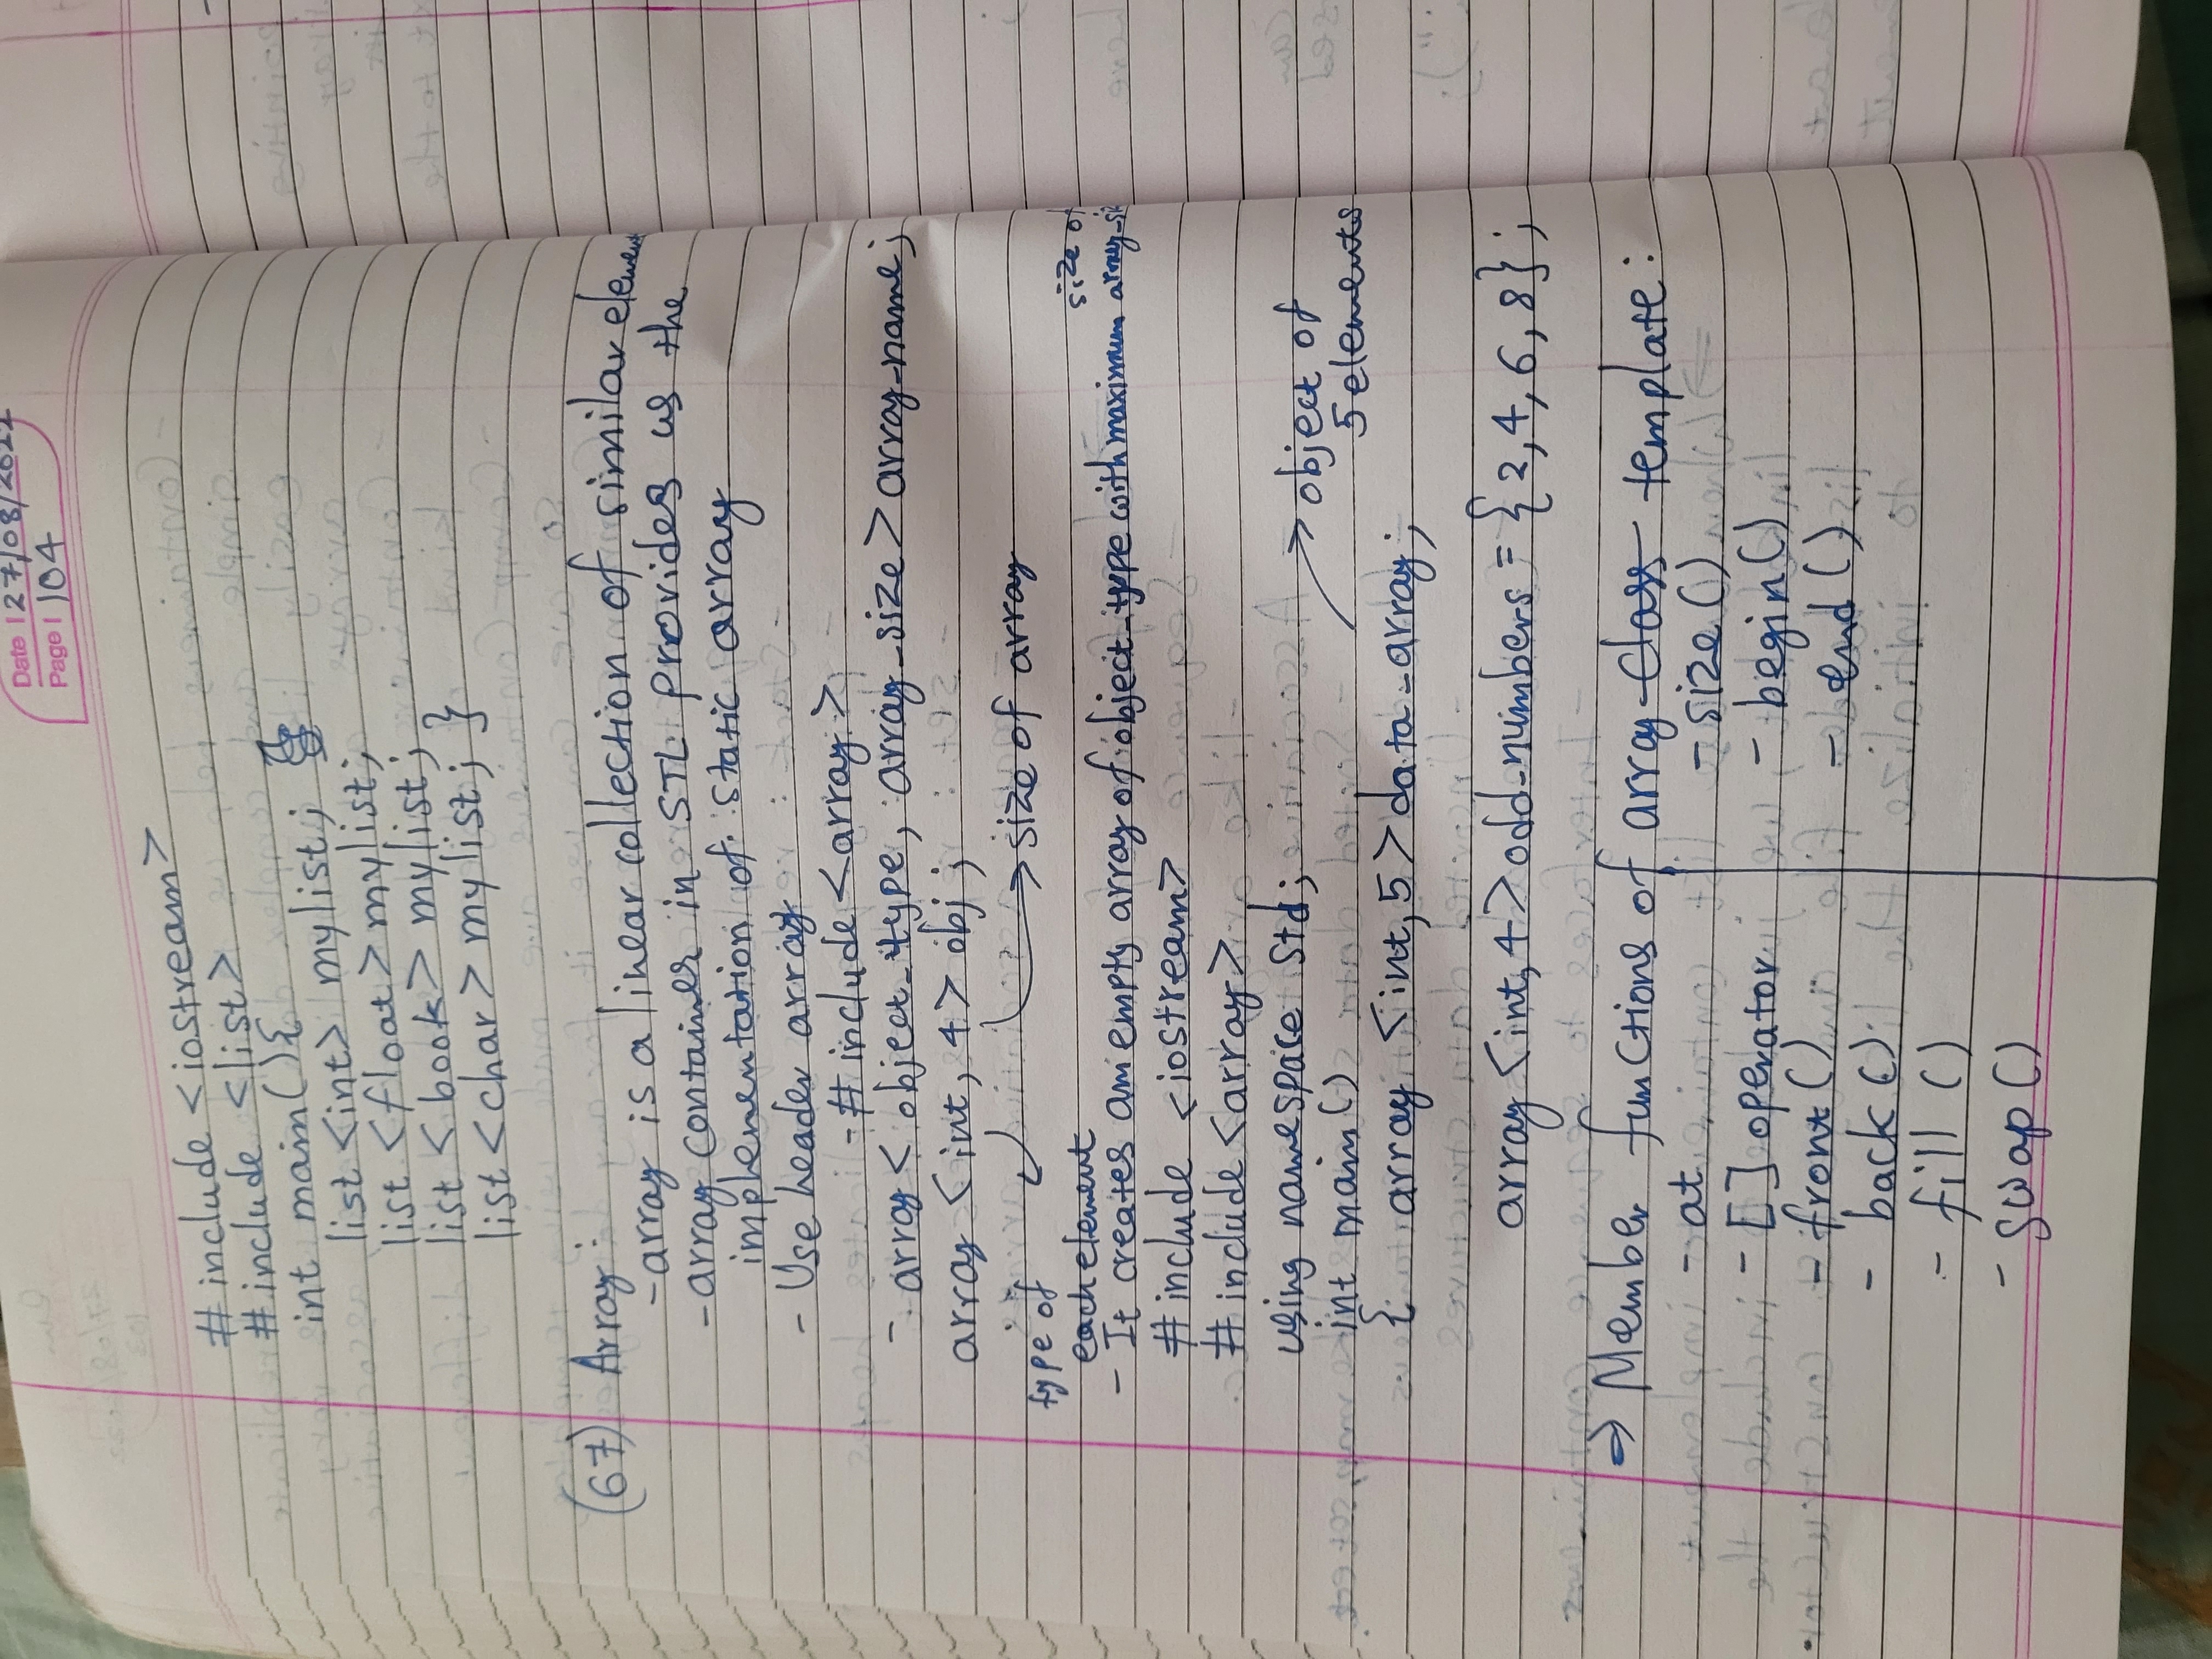 Date 27/08/2022
Page 104
#include <iostream>
#include <list>
int main(){
list <int> mylist;
list <float> mylist;
list <book> mylist;
list <char> mylist; }
(67) Array:
- array is a linear collection of similar element
- array container in STL provides us the
implementation of static array
- Use header array
- #include <array>
- array < object_type, array_size > array_name;
array <int, 4> obj;
size of array
type of
each element
size of
- It creates an empty array of object_type with maximum array_si
#include <iostream>
#include <array>
using namespace std;
int main()
object of
5 elements
{ array <int, 5> data_array;
array <int, 4> odd_numbers = {2, 4, 6, 8};
⇒ Member functions of array class template:
- at
- size()
- [] operator
- begin()
- front()
- end()
- back()
- fill()
- swap()